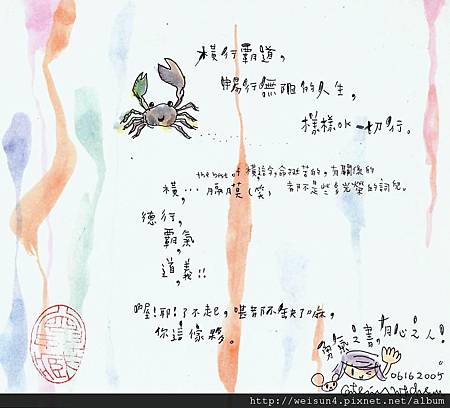 橫行霸道，
暢行無阻的人生，
樣樣OK一切行。
the best of 橫
橫… 膈膜（笑，
都不是些多光榮的詞兒。
德行，
霸氣，
道義!!
喔!耶!了不起，甚
你這傢夥。
勇氣之書，有心之人!
06162005
http://weisun4.pixnet.net/album